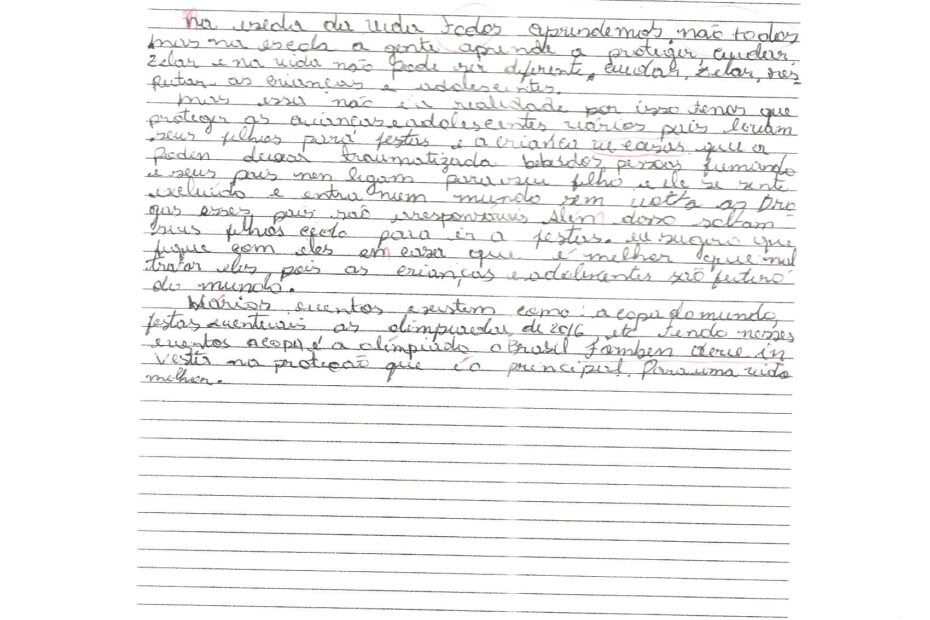 Na escola da vida todos aprendemos, não todos
mas na escola a gente aprende a proteger, cuidar,
zelar e na vida não pode ser diferente, cuidar, zelar, res
peitar as crianças e adolescentes.
Mas essa não é a realidade por isso temos que
proteger as crianças e adolescentes vários pais levam
seus filhos para festas e a criança ve coisas que a
podem deixar traumatizada bebados pessoas fumando
e seus pais nem ligam para seu filho e ele se sente
excluido e entra num mundo sem volta as Dro
gas esses pais são irresponsaveis Alem disso soltam
seus filhos cedo para ir a festas. eu sugiro que
fique com eles em casa que é melhor que mal
tratar eles, pois as crianças e adolescentes são futuro
do mundo.
Vários eventos existem como: a copa do mundo,
festas eventuais as olimpiadas de 2016 etc tendo nesses
eventos a copa e a olímpiada o Brasil tambem deve in
vestir na proteção que é o principal. Para uma vida
melhor.